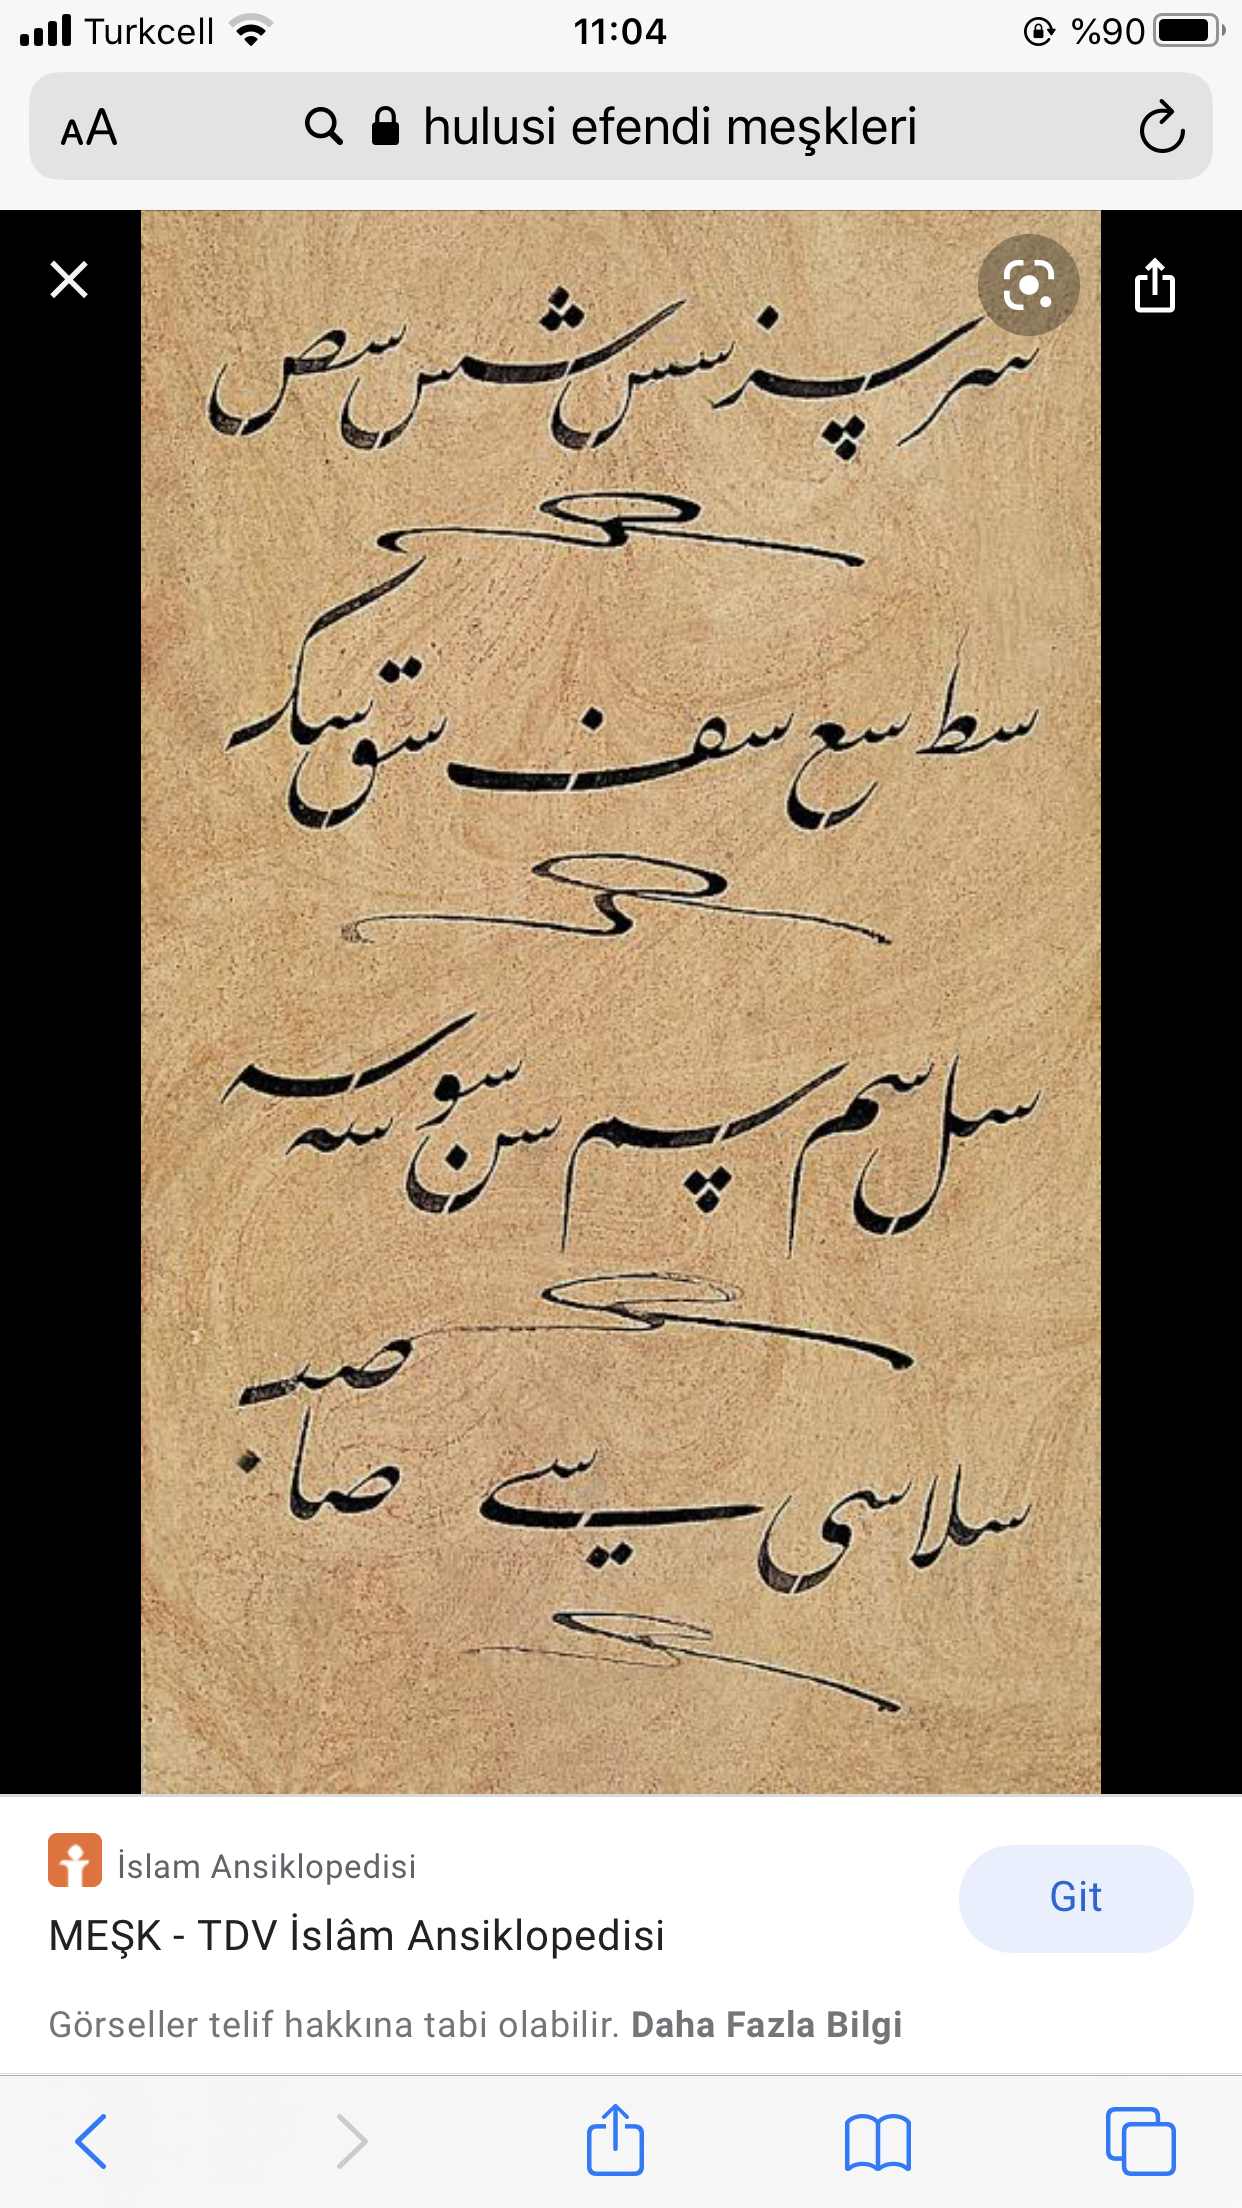 Turkcell 11:04 %90
AA hulusi efendi meşkleri
سر پسز سس شس سص
سط سع سف سق سک
سل سم پسم سن سو سه سه
سلا سی یسے صا صب
İslam Ansiklopedisi
MEŞK - TDV İslâm Ansiklopedisi
Git
Görseller telif hakkına tabi olabilir. Daha Fazla Bilgi